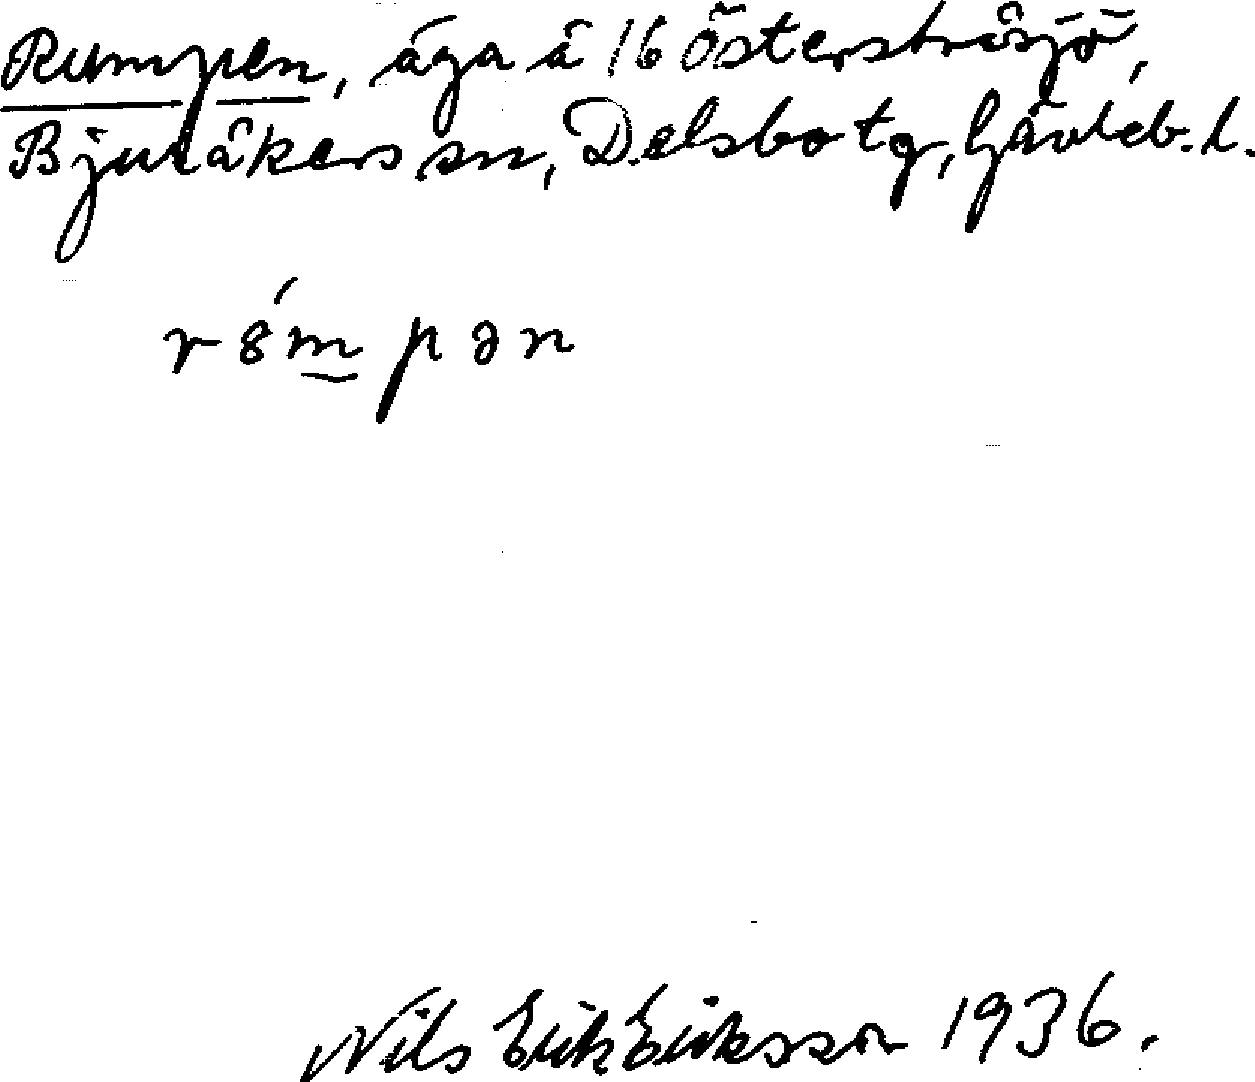 Rumpen, äga å 16 Österstråsjö,
Bjuråkers sn, Delsbo tg, Gävleb. l.
r8́m̰pən
Nils Erik Eriksson 1936.